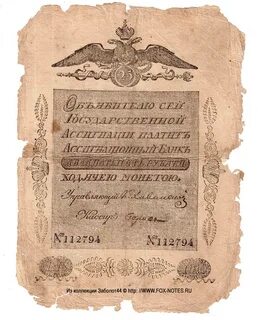 25
Объявителю сей
Государственной
Ассигнации платитъ
Ассигнаціонный Банкъ
двадцать пять рублей
ходячею монетою.
Управляющій
Кассиръ
№ 112794 № 112794
Из коллекции Заболот44 © http://WWW.FOX-NOTES.RU